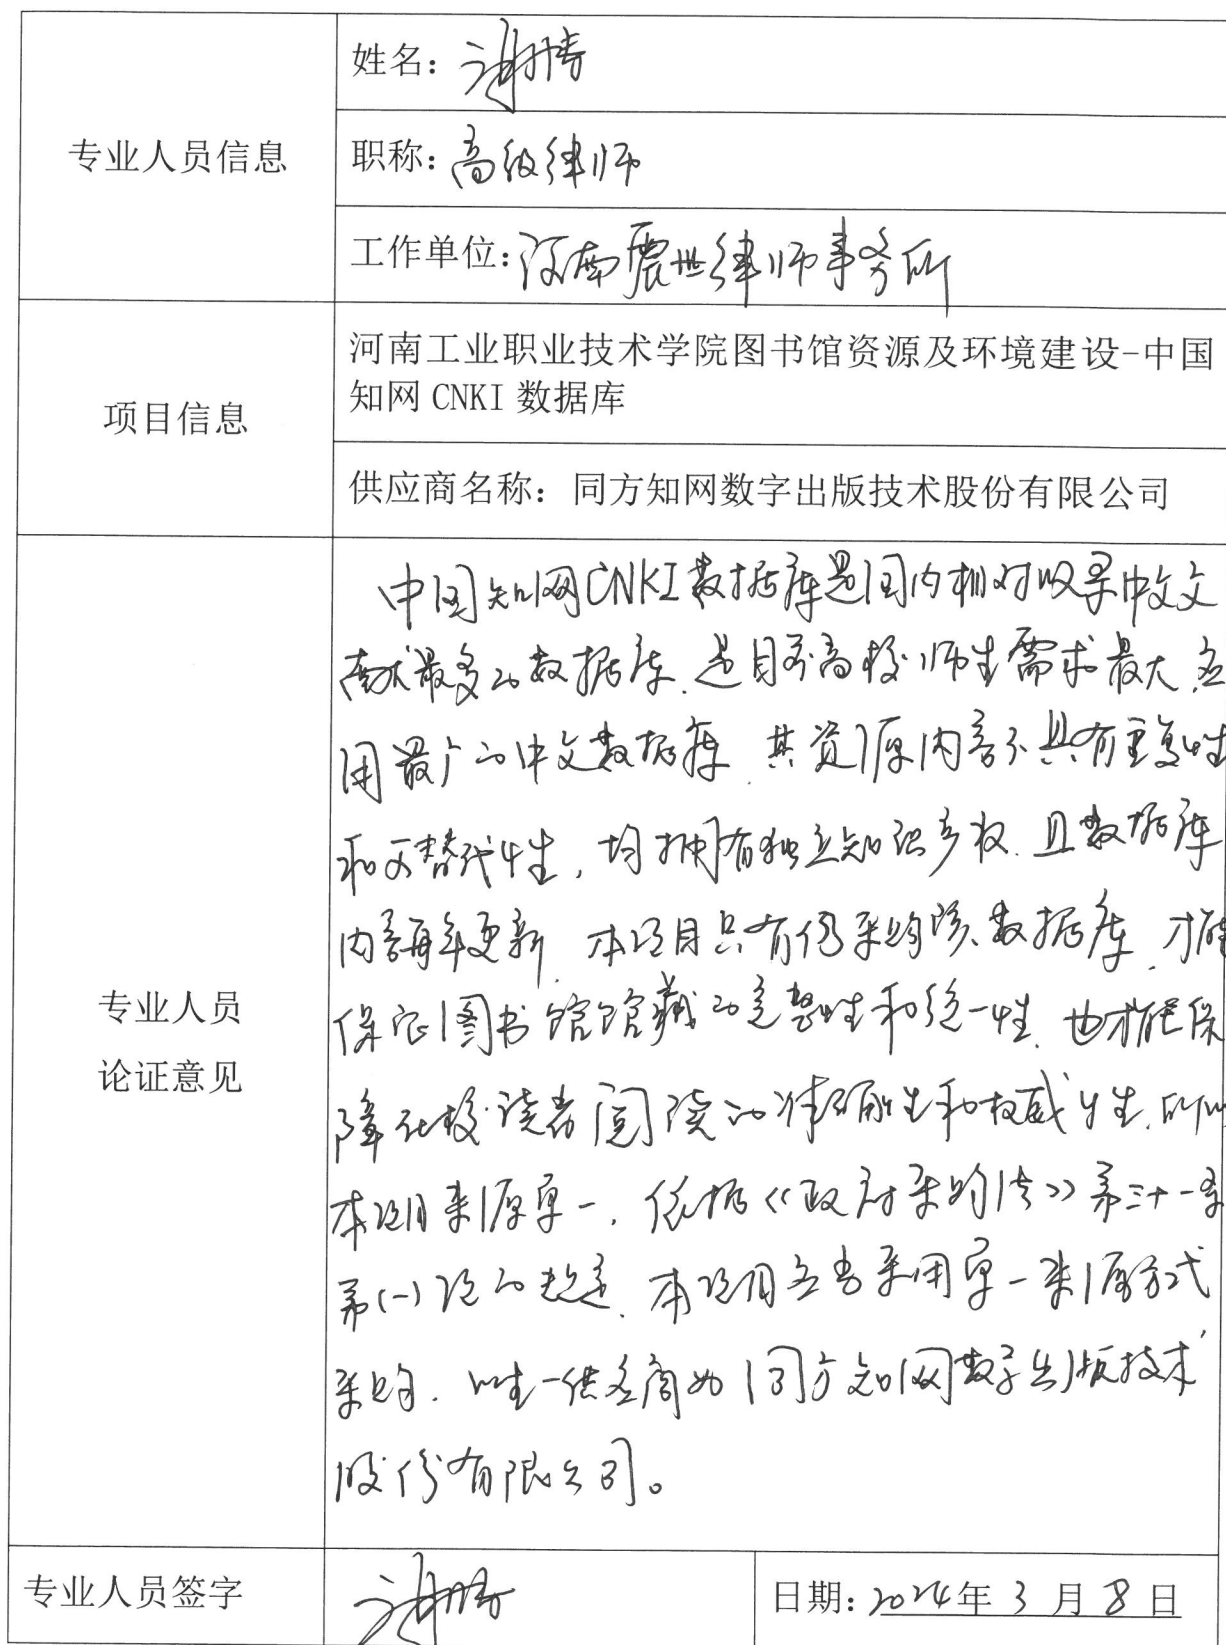 姓名：谢博
专业人员信息
职称：高级律师
工作单位：河南震世律师事务所
项目信息
河南工业职业技术学院图书馆资源及环境建设-中国
知网CNKI数据库
供应商名称：同方知网数字出版技术股份有限公司
专业人员
论证意见
中国知网CNKI数据库是国内相对收录中文文
献最多的数据库，是目前高校师生需求最大，应
用最广的中文数据库，其资源内容不具有重复性
和可替代性，均拥有独立知识产权，且数据库
内容每年更新，本项目只有仍采购该数据库，才能
保证图书馆馆藏的完整性和统一性，也才能保
障在校读者阅读的准确性和权威性，所以
本项目来源单一，依据《政府采购法》第三十一条
第(一)项的规定，本项目应当采用单一来源方式
采购，唯一供应商为同方知网数字出版技术
股份有限公司。
专业人员签字
谢博
日期：2024年3月8日